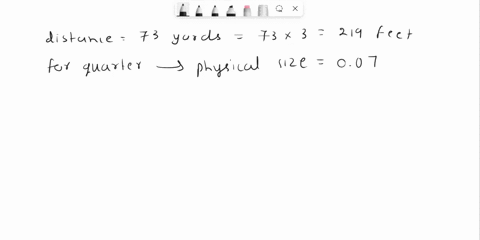 distance = 73 yards = 73 × 3 = 219 feet
for quarter → physical size = 0.07